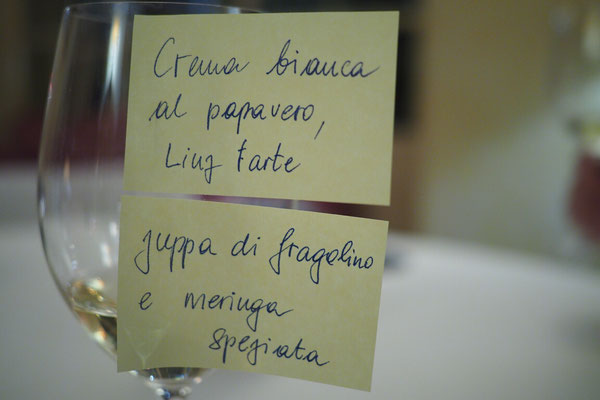 Crema bianca
al papavero,
Linz tarte
zuppa di fragolino
e meringa
speziata